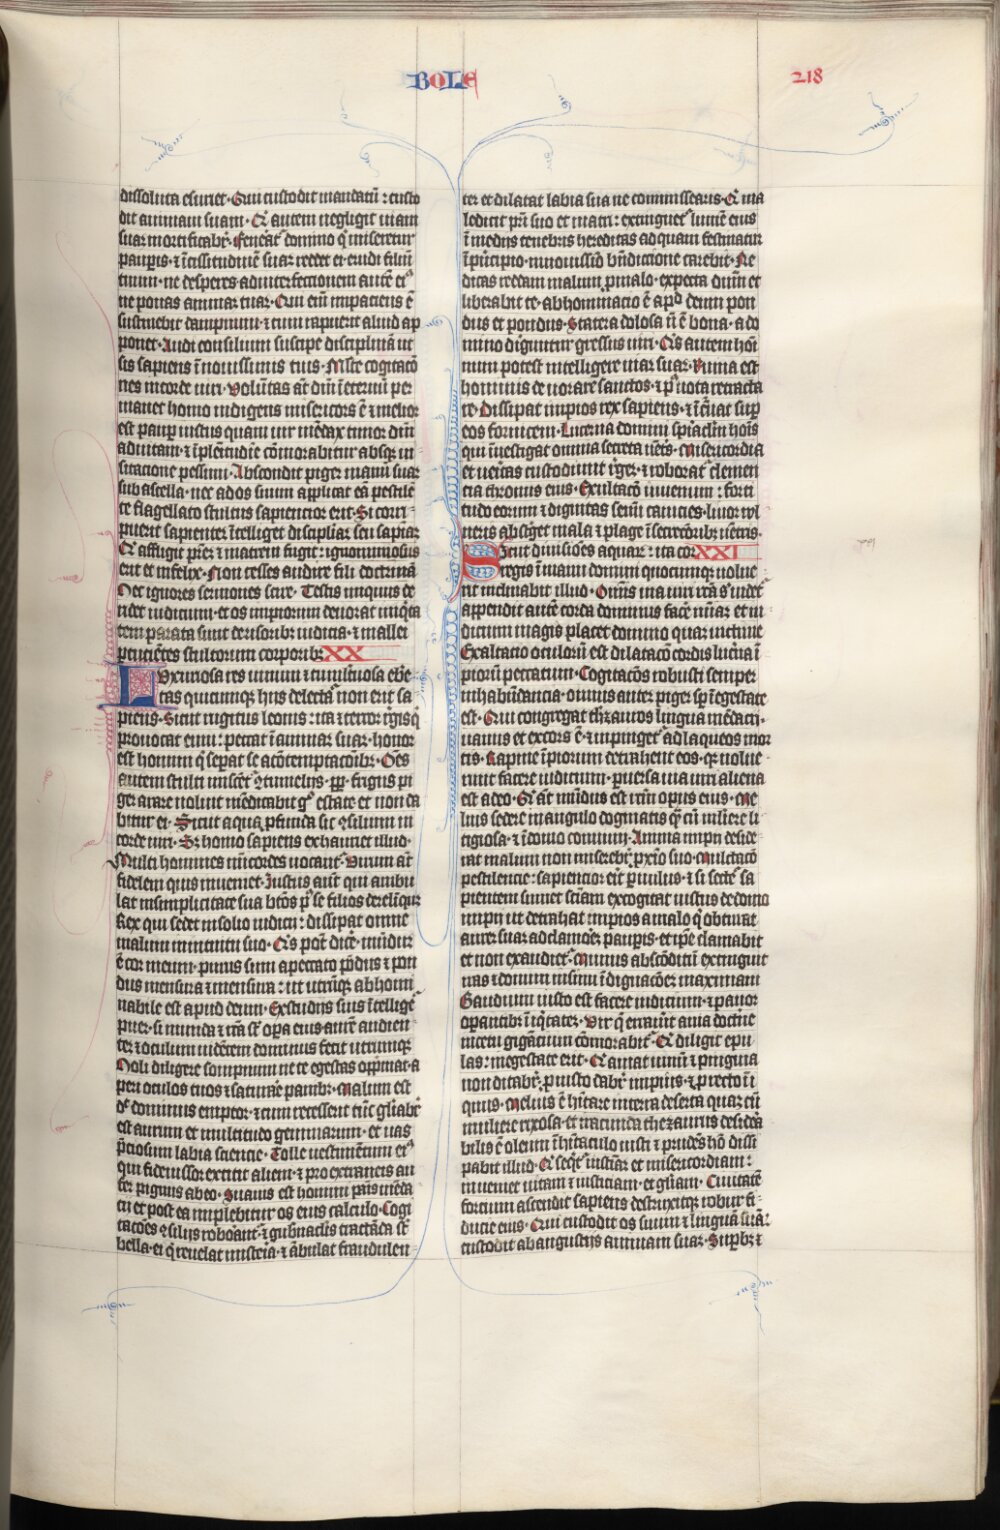 BOLE
218
dissoluta esuriet · Qui custodit mandatū : custo
dit animam suam · Qi autem negligit uiam
suaz mortificabit̄ · feneat̄ domino q̄ miseretur
pauperis · ⁊ uicissitudinē suaz reddet ei · erudi filiū
tuum · ne desperes · ad interfectionem autē eiꝰ
ne ponas animaz tuaz · Qui eni impaciens ē
sustinebit dampnum · ⁊ cum rapuerit aliud ap
ponet · Audi consilium suscipe disciplinā ut
sis sapiens ī nouissimis tuis · Mlte cogitacō
nes in corde uiri · Voluntas at̄ dn̄i ī eternū per
manet homo indigens misericors ē ⁊ melior
est paup̄ iustus quam uir mēdax timor dn̄i
ad uitam · ⁊ ī plenitudie cōmorabitur absqꝫ ui
sitacione pessimi · Abscondit piger manū suaz
sub ascella · nec ad os suum applicat eā pestilē
te flagellato stultus sapiencior erit · Si corri
puerit sapientez ītelliget disciplinaz seu sapiaz
Qi affligit pr̄ez ⁊ matrem fugit : ignominiosus
erit et infelix · Non cesses audire fili doctrinā
Nec ignores sermones scie · Testis iniquus de
ridet iudicium · et os impiorum deuorat iniq̄ta
tem parata sunt derisoribꝫ iudicia · ⁊ mallei
percuciētes stultorum corporibꝫ XX
Luxuriosa res uinum ⁊ tumultuosa ebrie
tas quicumqꝫ hiis delectat̄ non erit sa
piens · Sicut rugitus leonis : ita ⁊ terror regis q̄
prouocat eum : peccat ī animaz suaz · honor
est homini q̄ sepat se a cōtemptacōibꝫ · Oēs
autem stulti miscēt̄ ꝯtumeliis · ꝓpt frigus pi
ger arare noluit mēdicabit g° estate et non da
bitur ei · Sicut aqua ꝓfunda sic ꝯsilium in
corde uiri · Sꝫ homo sapiens exhauriet illud ·
Multi homines misericordes uocant̄ · Virum at̄
fidelem quis inueniet · Iustus aut̄ qui ambu
lat in simplicitate sua btōs p̄ se filios derelīqꝫ
Rex qui sedet in solio iudicii : dissipat omne
malum intuitu suo · Qis pot̄ dicē · mūdū
ē cor meum · purus sum a peccato pōdus ⁊ pon
dus mensura ⁊ mensura : utrūqꝫ abhomi
nabile est apud deum · Ex studiis suis ītelligit̄
puer · si munda ⁊ rc̄a st̄ opa eius aurē audien
tez ⁊ oculum uidētem dominus fecit utrumqꝫ
Noli diligere sompnum ne te egestas opprimat · a
peri oculos tuos ⁊ saturare panibꝫ · Malum est
dꝫ dominus emptor · ⁊ cum recesserit tūc gliabr̄
est aurum et multitudo gemmarum · et uas
p̄ciosum labia sciencie · Tolle uestimētum eiꝰ
qui fideiussor extitit alieni · ⁊ pro extraneis au
fer pignus ab eo · Suauis est homini panis mēda
cii et post ea implebitur os eius calculo · Cogi
tacōes ꝯsiliis roborāt̄ · ⁊ gub̄naclis tractāda st̄
bella · ei q̄ reuelat misteria · ⁊ ābulat fraudulen
ter et dilatat labia sua ne commiscearis · Qi ma
ledicit pr̄i suo et matri : extinguet̄ lumē eius
ī mediis tenebris hereditas ad quam festinatur
ī principio · in nouissiō bn̄dictione carebit · Ne
dicas reddam malum p̄ malo · expecta dn̄m et
liberabit te · abhominacio ē apd deum pon
dus et pondus · Statera dolosa nō ē bona · a do
mino diriguntur gressus uiri · Qis autem hoī
num potest intelligere uiaz suaz · Ruina est
hominis deuorare sanctos · ⁊ p̄ uota retracta
re · Dissipat impios rex sapiens · ⁊ īcuat sup̄
eos fornicem · Lucerna domini spiraclm̄ hoīs
qui īuestigat omnia secreta uēts · Misericordia
et ueritas custodiunt regez · ⁊ roborat̄ clemen
cia thronus eius · Exultacō iuuenum : forti
tudo eorum ⁊ dignitas senū canicies · liuor uul
neris absterget mala ⁊ plage ī secretioribꝫ uētris ·
Sicut diuisiōes aquaz : ita cor XXI
regis ī manu domini quocumqꝫ uolue
rit inclinabit illud · Omnis uia uiri rc̄a s' uidet̄
appendit autē corda dominus facē miāz et iu
dicium magis placet domino quaz uictime
Exaltacio oculorū est dilatacō cordis lucerna ī
piorū peccatum · Cogitacōes robusti semper
in habūdancia · omnis autez piger sp̄ ī egestate
est · Qui congregat thezauros lingua mēdacii
uanus et excors ē · ⁊ impinget̄ ad laqueos mor
tis · Rapine ī piorum detrahent eos · qꝫ nolue
runt facere iudicium · p̄uersa uia uiri aliena
est a deo · Qi at̄ mūdus est rctm̄ opus eius · Me
lius sedere in angulo domatis q̄ cū muliere li
tigiosa · ⁊ ī domo comuni · Anima impii deside
rat malum non misereb̄r ꝓxio suo · Mulctato
pestilente : sapiencior erit p̄uulus · ⁊ si sectet̄ sa
pientem sumet sciām excogitat iustus de domo
impii ut detrahat impios a malo q̄ obturat
aurez suaz ad clamorez pauperis · et ipē clamabit
et non exaudiet̄ · Munus abscōditū extinguit
iras ⁊ donum in sinu īdignacōez maximam
Gaudium iusto est facere iudicium · ⁊ pauor
op̄antibꝫ īiq̄tatez · Vir q̄ errauit a uia doctrie
in cetu gigātium cōmorabit̄ · Qi diligit epu
las : in egestate erit · Qi amat uinū ⁊ pinguia
non ditab̄r · p̄ iusto dab̄r impius · ⁊ p̄ rectoī i
quus · Melius ē hītare in terra deserta quaz cū
muliere rixosa · et iracunda thezaurus desidera
bilis ē oleum ī hītaculo iusti ⁊ prudēs hō dissi
pabit illud · Qi seq̄t̄ iusticiāz et misericordiam :
inueniet uitam ⁊ iusticiam · et gliam · Ciuitatē
forcium ascendit sapiens destruxitqꝫ robur fi
ducie eius · Qui custodit os suum ⁊ linguā suā :
custodit ab angustiis animam suaz · Supbꝫ ⁊